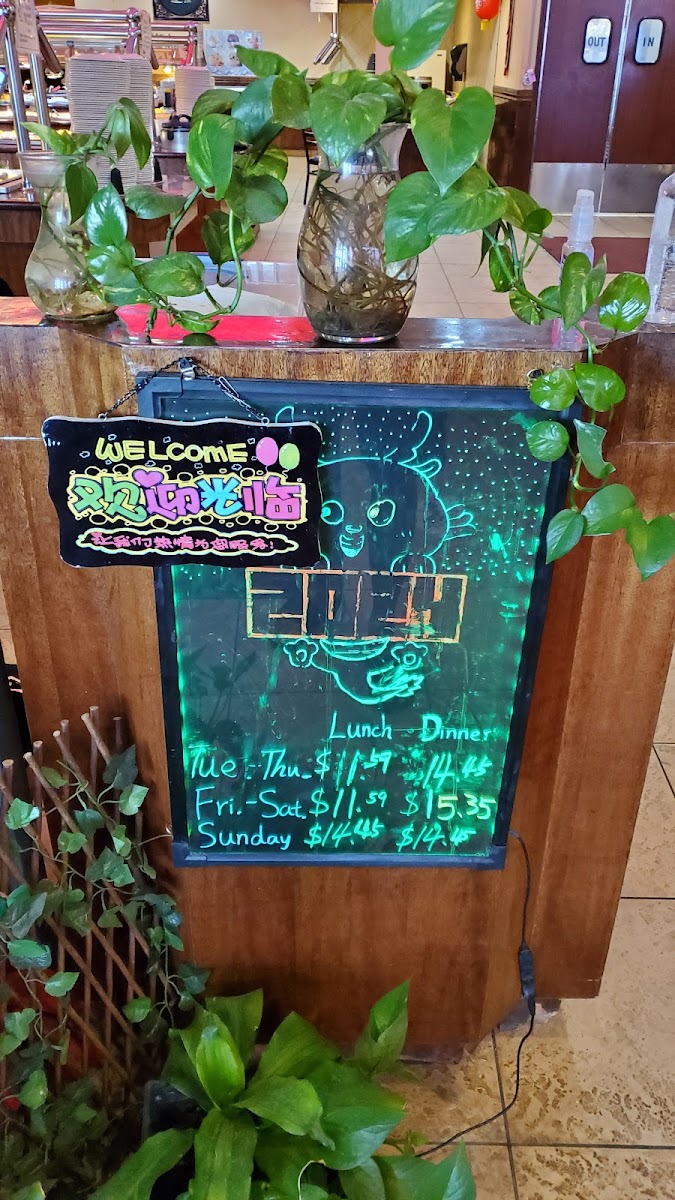 OUT
IN
WELCOME
欢迎光临
让我们热情为您服务!
Lunch Dinner
Tue.-Thu. $11.59 $14.45
Fri.-Sat. $11.59 $15.35
Sunday $14.45 $14.45